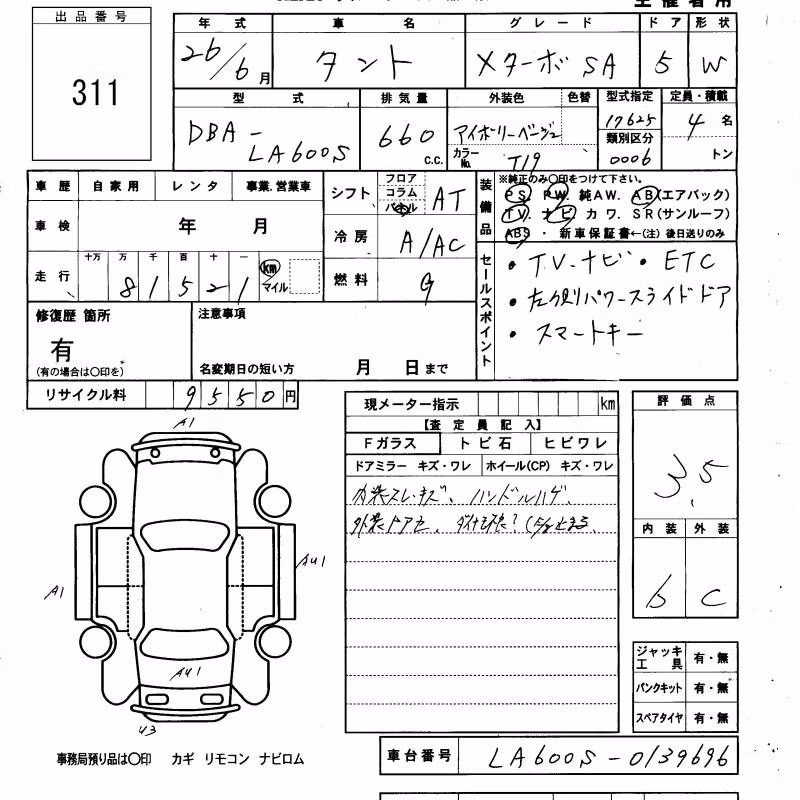 主催者用
出品番号
311
年式 車名 グレード ドア 形状
26/6月 タント Xターボ SA 5 W
型式 排気量 外装色 色替 型式指定 定員・積載
DBA-LA600S 660 c.c. アイボリーベージュ 17625 4名
カラーNo. T19 類別区分 0006 トン
車歴 自家用 レンタ 事業.営業車
車検 年 月
走行 十万 万 千 百 十 一
8 1 5 2 1 km マイル
シフト フロア コラム パネル AT
冷房 A/AC
燃料 G
装備品
※純正のみ〇印をつけて下さい。
PS. PW. 純AW. AB(エアバック)
TV. ナビ カワ. SR(サンルーフ)
ABS ・ 新車保証書←(注) 後日送りのみ
セールスポイント
・TV.ナビ ・ETC
・左側パワースライドドア
・スマートキー
修復歴 箇所
有
(有の場合は〇印を)
注意事項
名変期日の短い方 月 日まで
リサイクル料 9550円
現メーター指示 km
【査定員記入】
Fガラス トビ石 ヒビワレ
ドアミラー キズ・ワレ ホイール(CP) キズ・ワレ
内装スレ・キズ、ハンドルハゲ、
外装ドアセ、
評価点
3.5
内装 外装
b C
A1
A1
A41
A41
U3
ジャッキ工具 有・無
パンクキット 有・無
スペアタイヤ 有・無
事務局預り品は〇印 カギ リモコン ナビロム
車台番号 LA600S-0139696